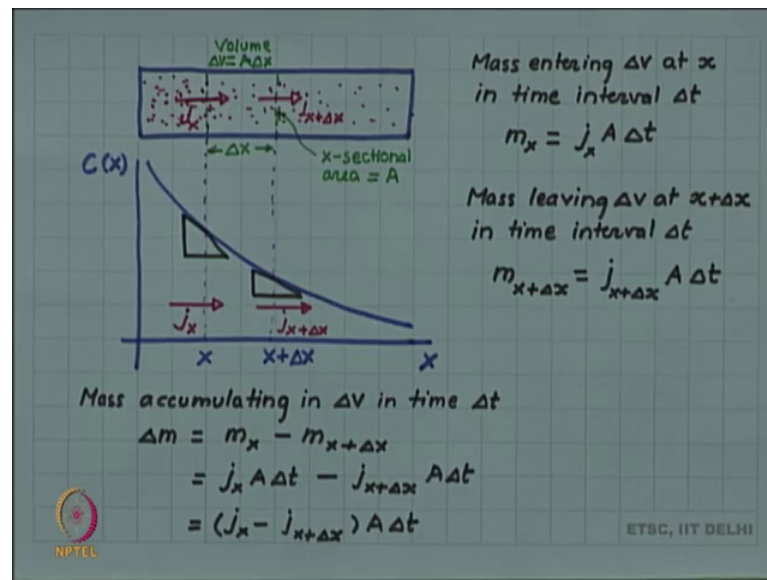 Volume
ΔV = AΔx
jₓ
jₓ₊Δₓ
Δx
x-sectional
area = A
C(x)
jₓ
jₓ₊Δₓ
x
x+Δx
x
Mass entering ΔV at x
in time interval Δt
mₓ = jₓ A Δt
Mass leaving ΔV at x+Δx
in time interval Δt
mₓ₊Δₓ = jₓ₊Δₓ A Δt
Mass accumulating in ΔV in time Δt
Δm = mₓ − mₓ₊Δₓ
= jₓ A Δt − jₓ₊Δₓ A Δt
= (jₓ − jₓ₊Δₓ) A Δt
NPTEL
ETSC, IIT DELHI